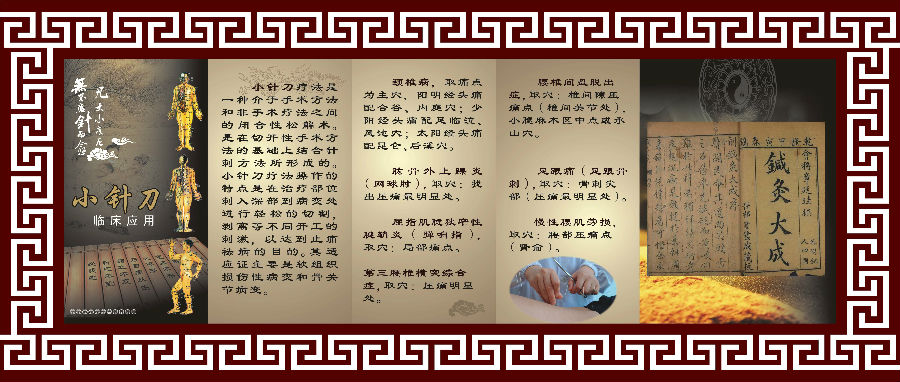 小针刀
临床应用
小针刀疗法是
一种介于手术方法
和非手术疗法之间
的闭合性松解术。
是在切开性手术方
法的基础上结合针
刺方法所形成的。
小针刀疗法操作的
特点是在治疗部位
刺入深部到病变处
进行轻松的切割，
剥离等不同的
刺激，以达到止痛
祛病的目的。其适
应证主要是软组织
损伤性病变和骨关
节病变。
颈椎病，取痛点
为主穴，阳明经头痛
配合谷、内庭穴；少
阳经头痛配足临泣、
风池穴；太阳经头痛
配昆仑、后溪穴。
肱骨外上踝炎
（网球肘），取穴：找
出压痛最明显处。
屈指肌腱狭窄性
腱鞘炎（弹响指），
取穴：局部痛点。
第三腰椎横突综合
症，取穴：压痛明显
处。
腰椎间盘脱出
症，取穴：椎间隙压
痛点（椎间关节处）、
小腿麻木区中点或承
山穴。
足跟痛（足跟骨
刺），取穴：骨刺尖
部（压痛最明显处）。
慢性腰肌劳损，
取穴：腰部压痛点
（肾俞）。
鍼灸大成